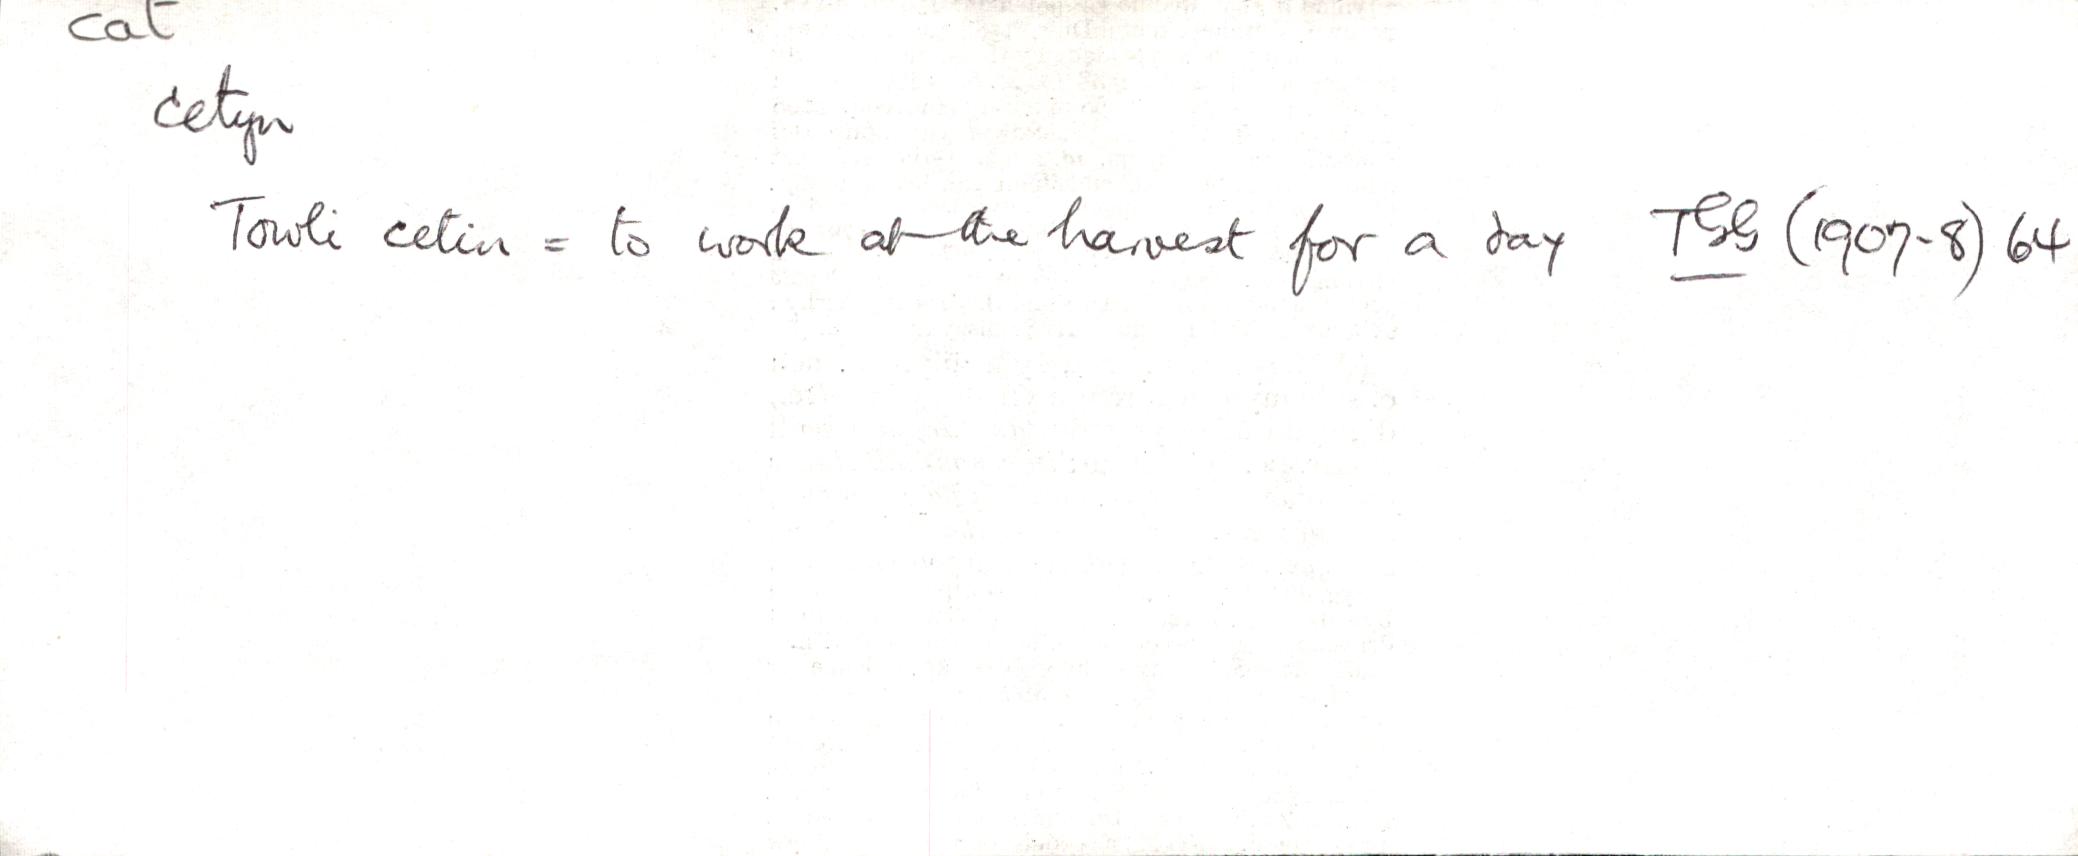 cat
cetyn
Towli cetin = to work at the harvest for a day TGG (1907-8) 64